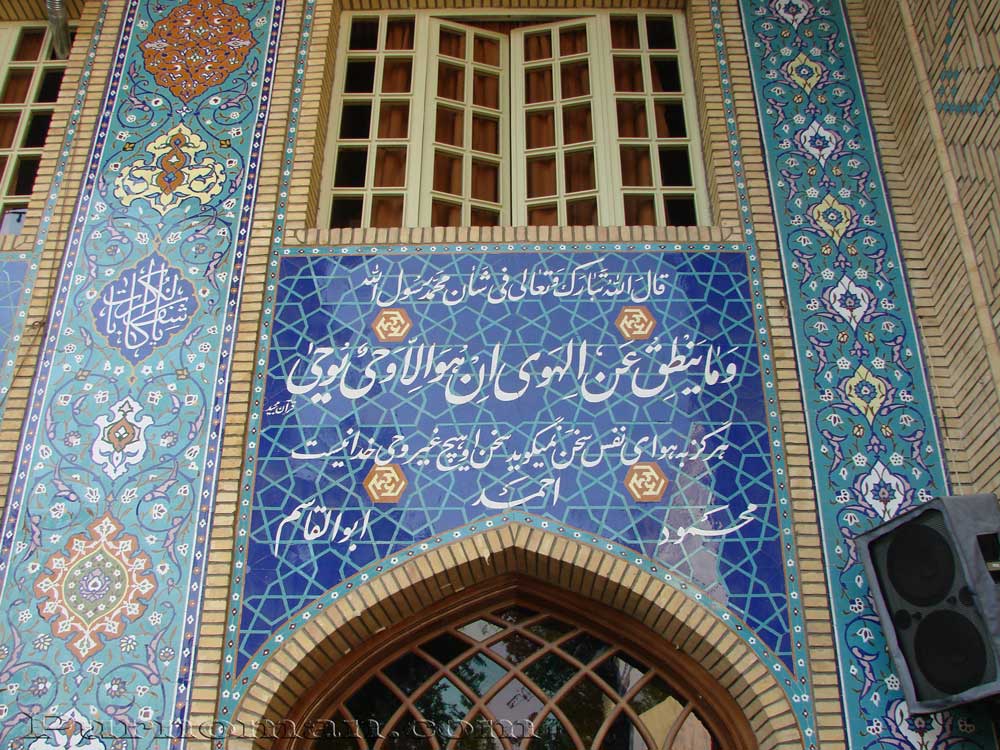 قال الله تبارک و تعالی فی شان محمد رسول الله
و ما ینطق عن الهوی ان هو الا وحی یوحی
قرآن مجید
هرگز به هوای نفس سخن نمیگوید سخن او هیچ غیر وحی خدا نیست
احمد
محمود
ابوالقاسم